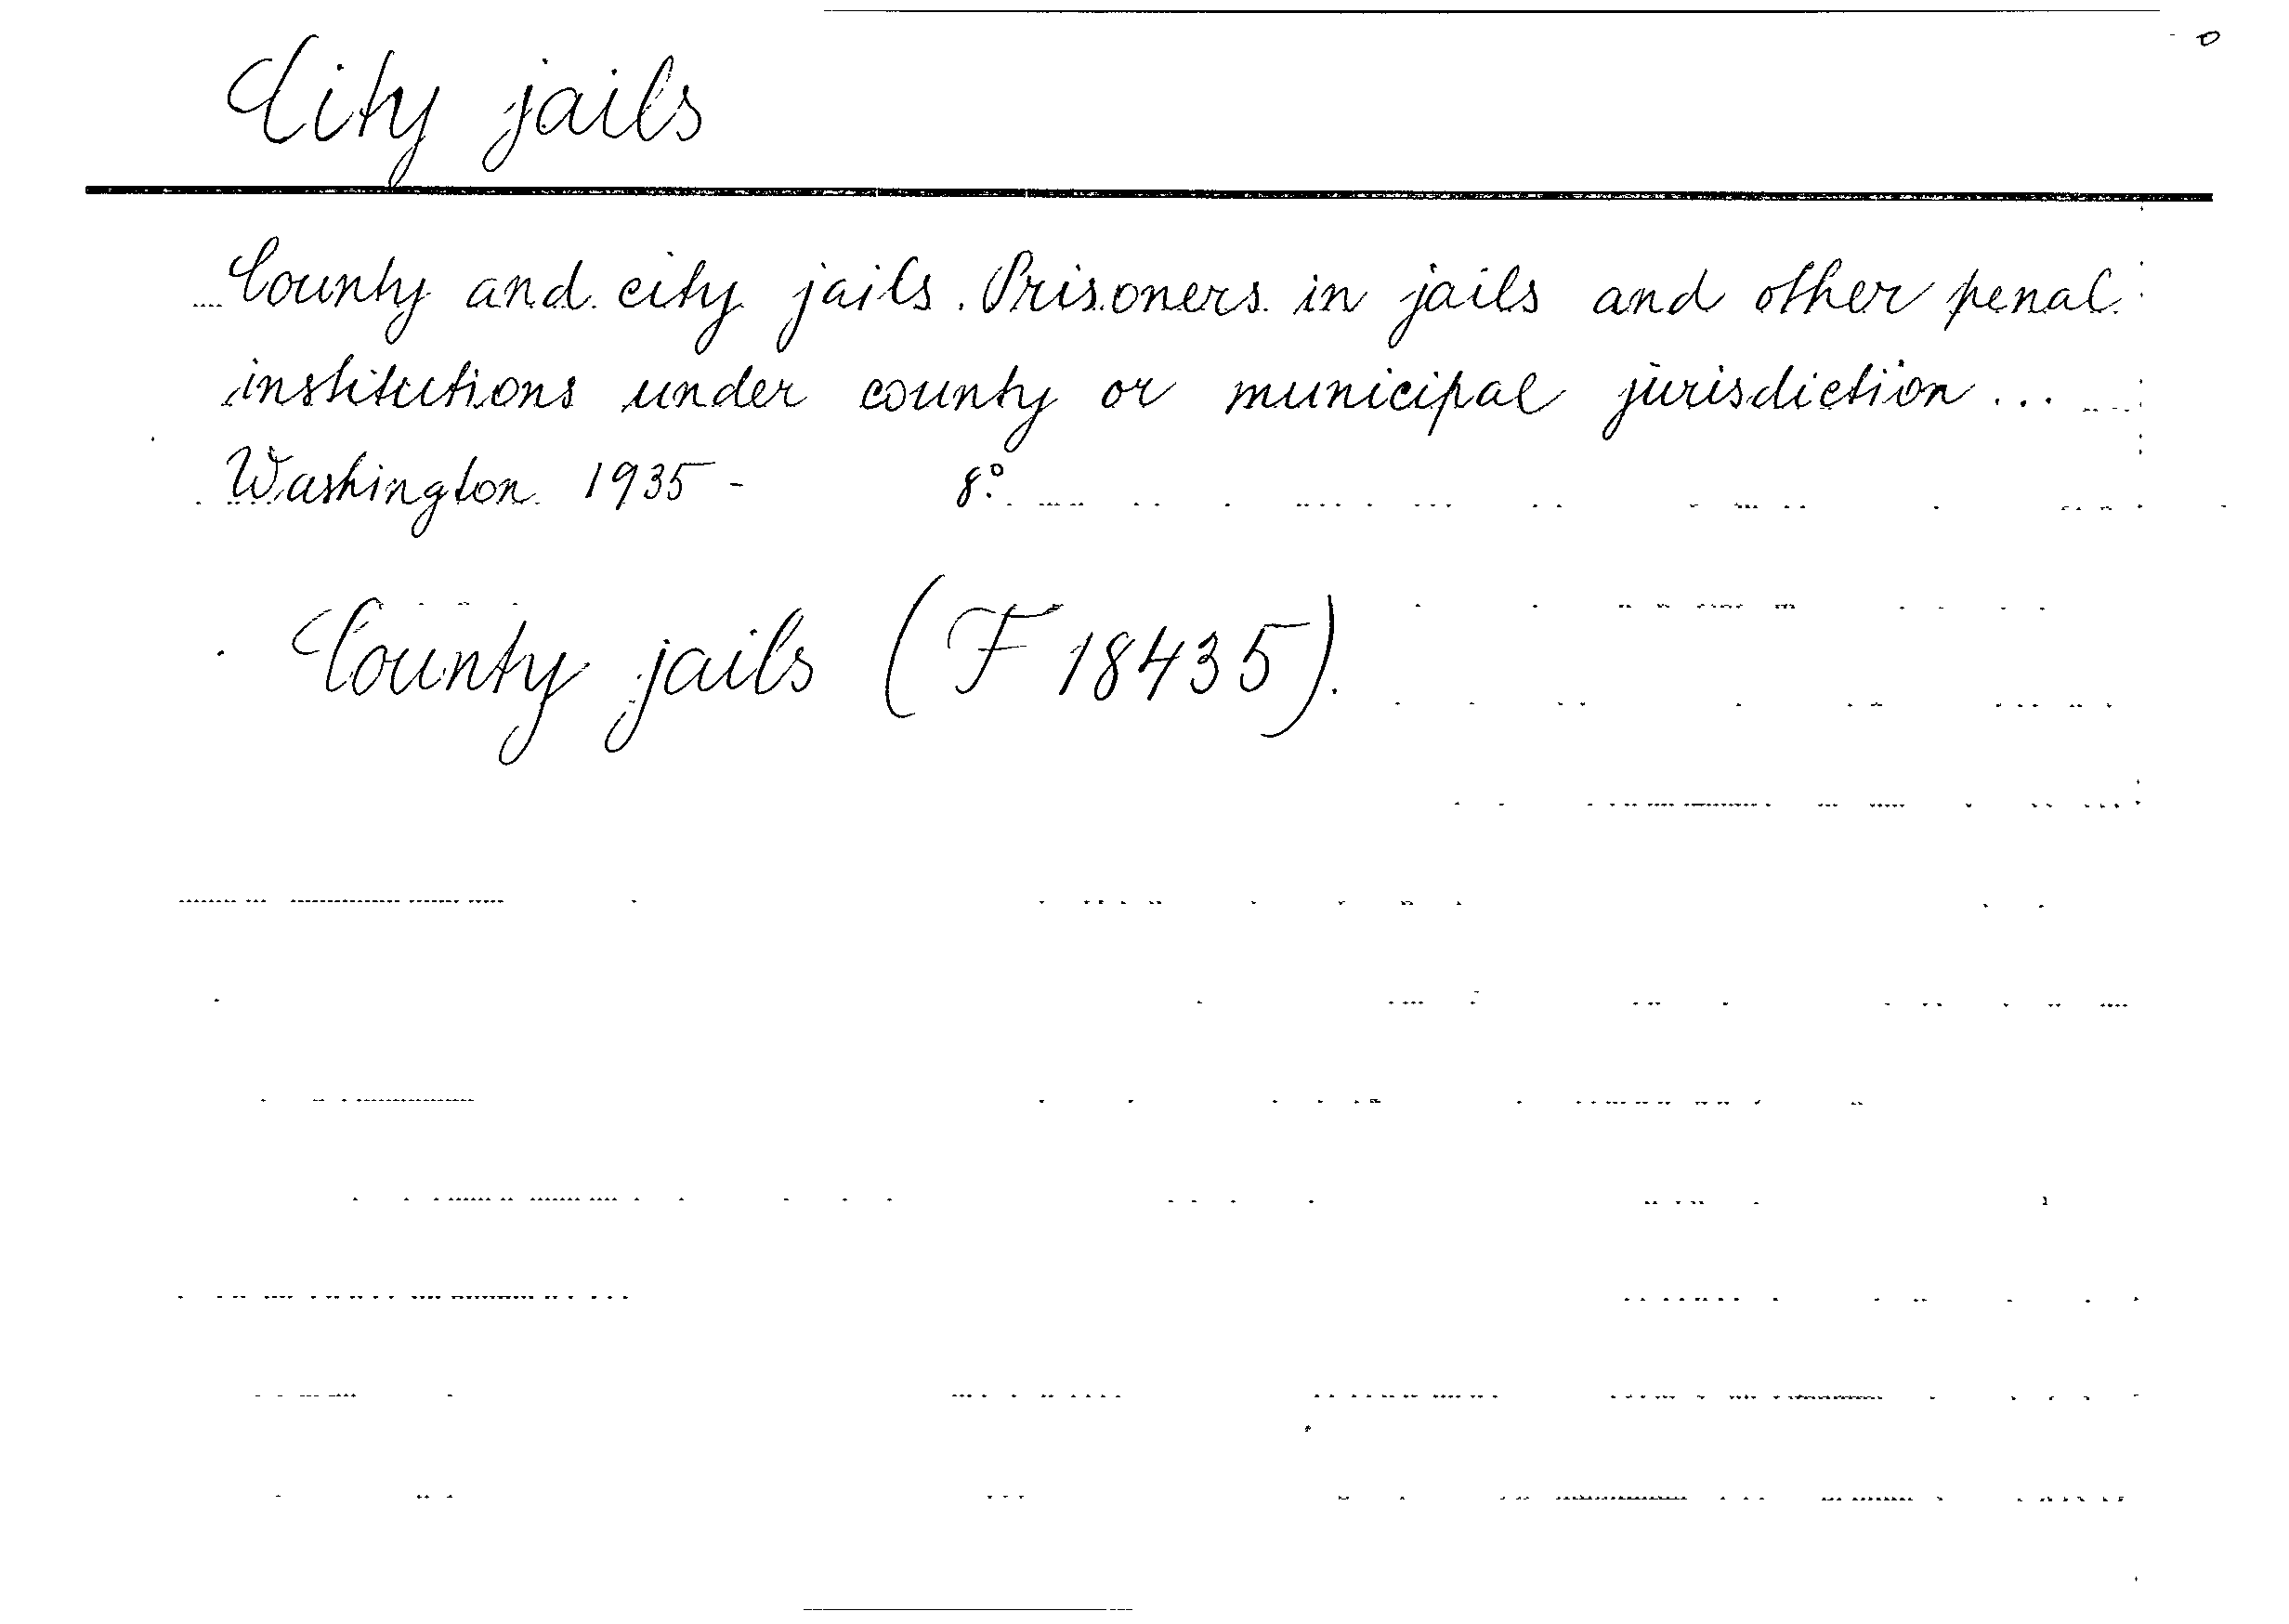 City jails
County and city jails. Prisoners in jails and other penal
institutions under county or municipal jurisdiction ...
Washington 1935 - 8º.
County jails (F 18435).